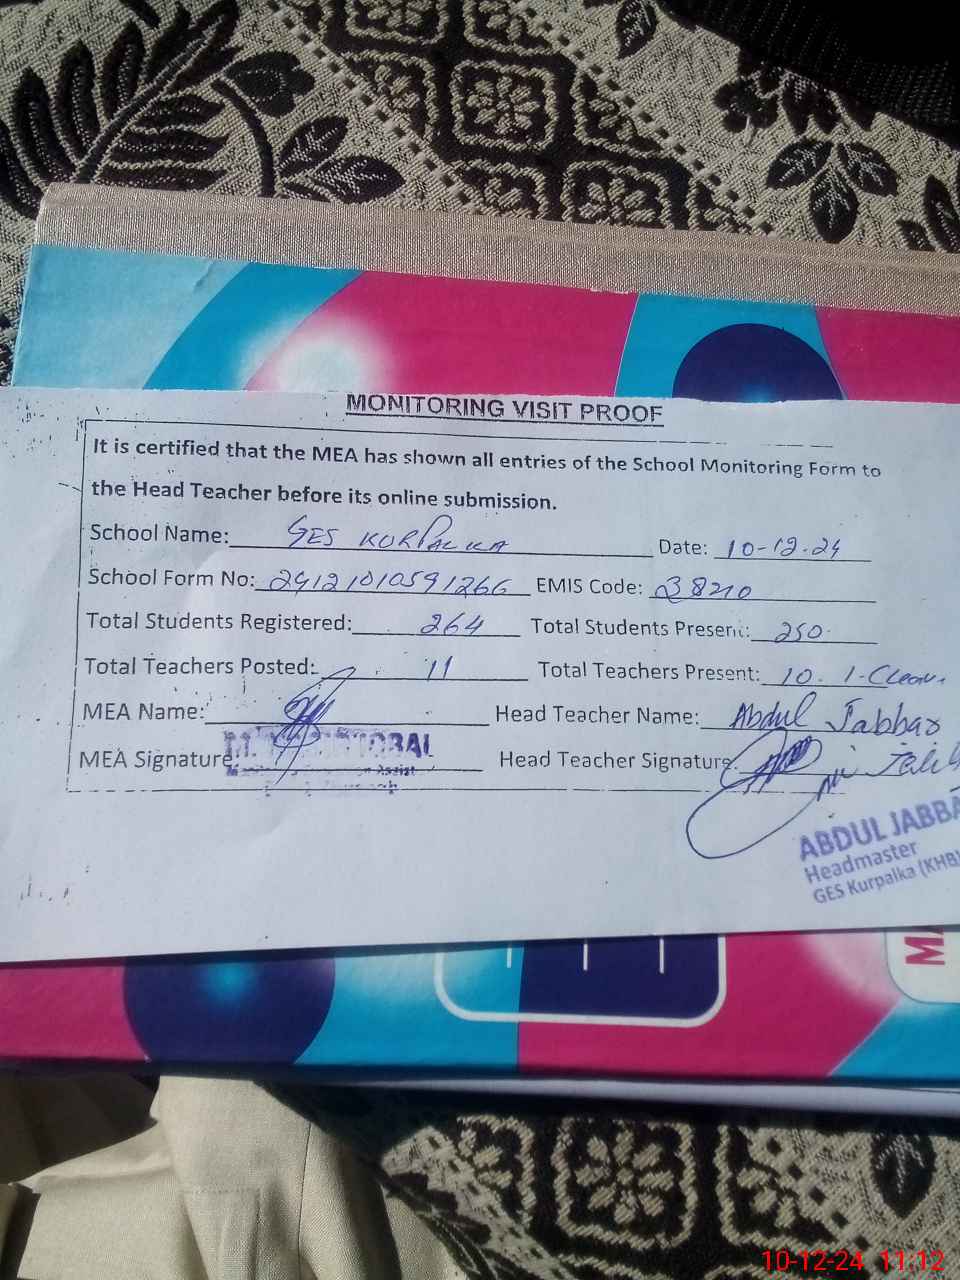 MONITORING VISIT PROOF
It is certified that the MEA has shown all entries of the School Monitoring Form to
the Head Teacher before its online submission.
School Name: GES KURPALKA Date: 10-12-24
School Form No: 24121010591266 EMIS Code: 38210
Total Students Registered: 264 Total Students Present: 250
Total Teachers Posted: 11 Total Teachers Present: 10. 1-Cleav.
MEA Name: Head Teacher Name: Abdul Jabbar
MEA Signature: Head Teacher Signature:
ABDUL JABBA
Headmaster
GES Kurpalka (KHB)
MA
10-12-24 11:12